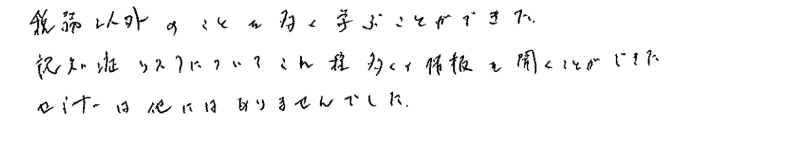 税務以外のことを多く学ぶことができた。
認知症リスクについてこれ程多くの情報を聞くことができた
セミナーは他にはありませんでした。